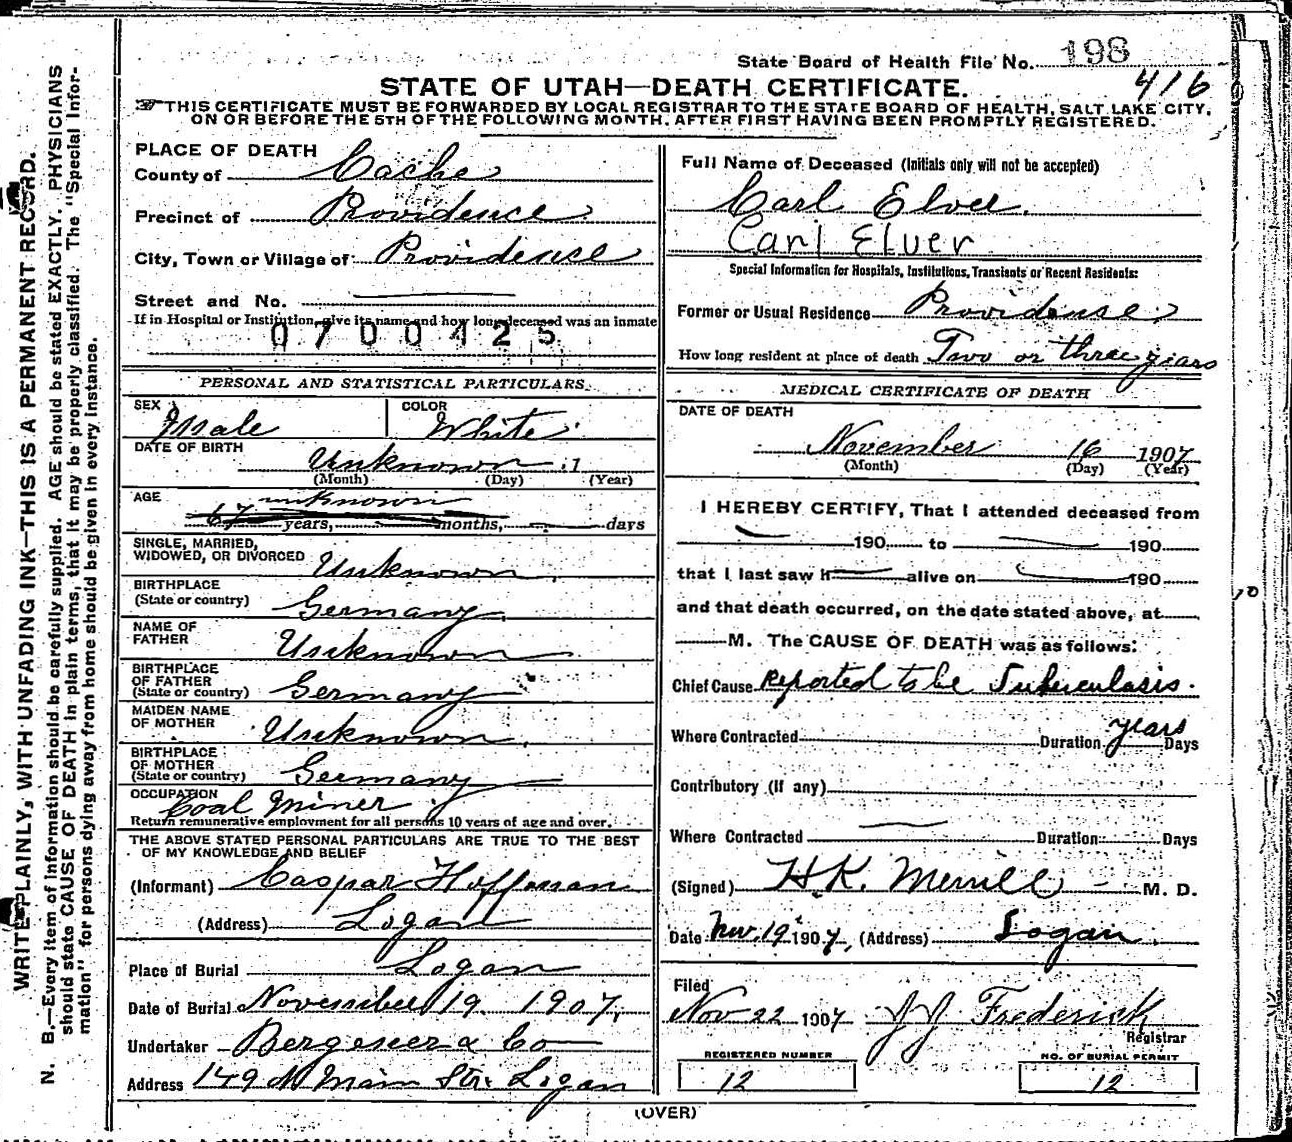 State Board of Health File No. 198
416
STATE OF UTAH—DEATH CERTIFICATE.
THIS CERTIFICATE MUST BE FORWARDED BY LOCAL REGISTRAR TO THE STATE BOARD OF HEALTH, SALT LAKE CITY,
ON OR BEFORE THE 5TH OF THE FOLLOWING MONTH, AFTER FIRST HAVING BEEN PROMPTLY REGISTERED.
WRITE PLAINLY, WITH UNFADING INK—THIS IS A PERMANENT RECORD.
N. B.—Every item of information should be carefully supplied. AGE should be stated EXACTLY. PHYSICIANS
should state CAUSE OF DEATH in plain terms, that it may be properly classified. The "Special Infor-
mation" for persons dying away from home should be given in every instance.
PLACE OF DEATH
County of Cache
Precinct of Providence
City, Town or Village of Providence
Street and No.
If in Hospital or Institution, give its name and how long deceased was an inmate
0700425
PERSONAL AND STATISTICAL PARTICULARS.
SEX Male COLOR White
DATE OF BIRTH
Unknown 1
(Month) (Day) (Year)
AGE unknown
67 years, months, days
SINGLE, MARRIED,
WIDOWED, OR DIVORCED Unknown
BIRTHPLACE
(State or country) Germany
NAME OF
FATHER Unknown
BIRTHPLACE
OF FATHER
(State or country) Germany
MAIDEN NAME
OF MOTHER Unknown
BIRTHPLACE
OF MOTHER
(State or country) Germany
OCCUPATION
Coal Miner
Return remunerative employment for all persons 10 years of age and over.
THE ABOVE STATED PERSONAL PARTICULARS ARE TRUE TO THE BEST
OF MY KNOWLEDGE AND BELIEF
(Informant) Caspar Hoffman
(Address) Logan
Place of Burial Logan
Date of Burial November 19 1907.
Undertaker & Co
Address 149 N Main Str. Logan
Full Name of Deceased (Initials only will not be accepted)
Carl Elver.
Carl Elver
Special Information for Hospitals, Institutions, Transients or Recent Residents:
Former or Usual Residence Providence
How long resident at place of death Two or three years
MEDICAL CERTIFICATE OF DEATH
DATE OF DEATH
November 16 1907
(Month) (Day) (Year)
I HEREBY CERTIFY, That I attended deceased from
190 to 190
that I last saw h alive on 190
and that death occurred, on the date stated above, at
M. The CAUSE OF DEATH was as follows:
Chief Cause Reported to be Tuberculosis.
Where Contracted Duration years Days
Contributory (If any)
Where Contracted Duration Days
(Signed) H.K. Merrill M. D.
Date Nov. 19 1907, (Address) Logan
Filed
Nov 22 1907 J J Frederick
Registrar
REGISTERED NUMBER
12
NO. OF BURIAL PERMIT
12
(OVER)
10